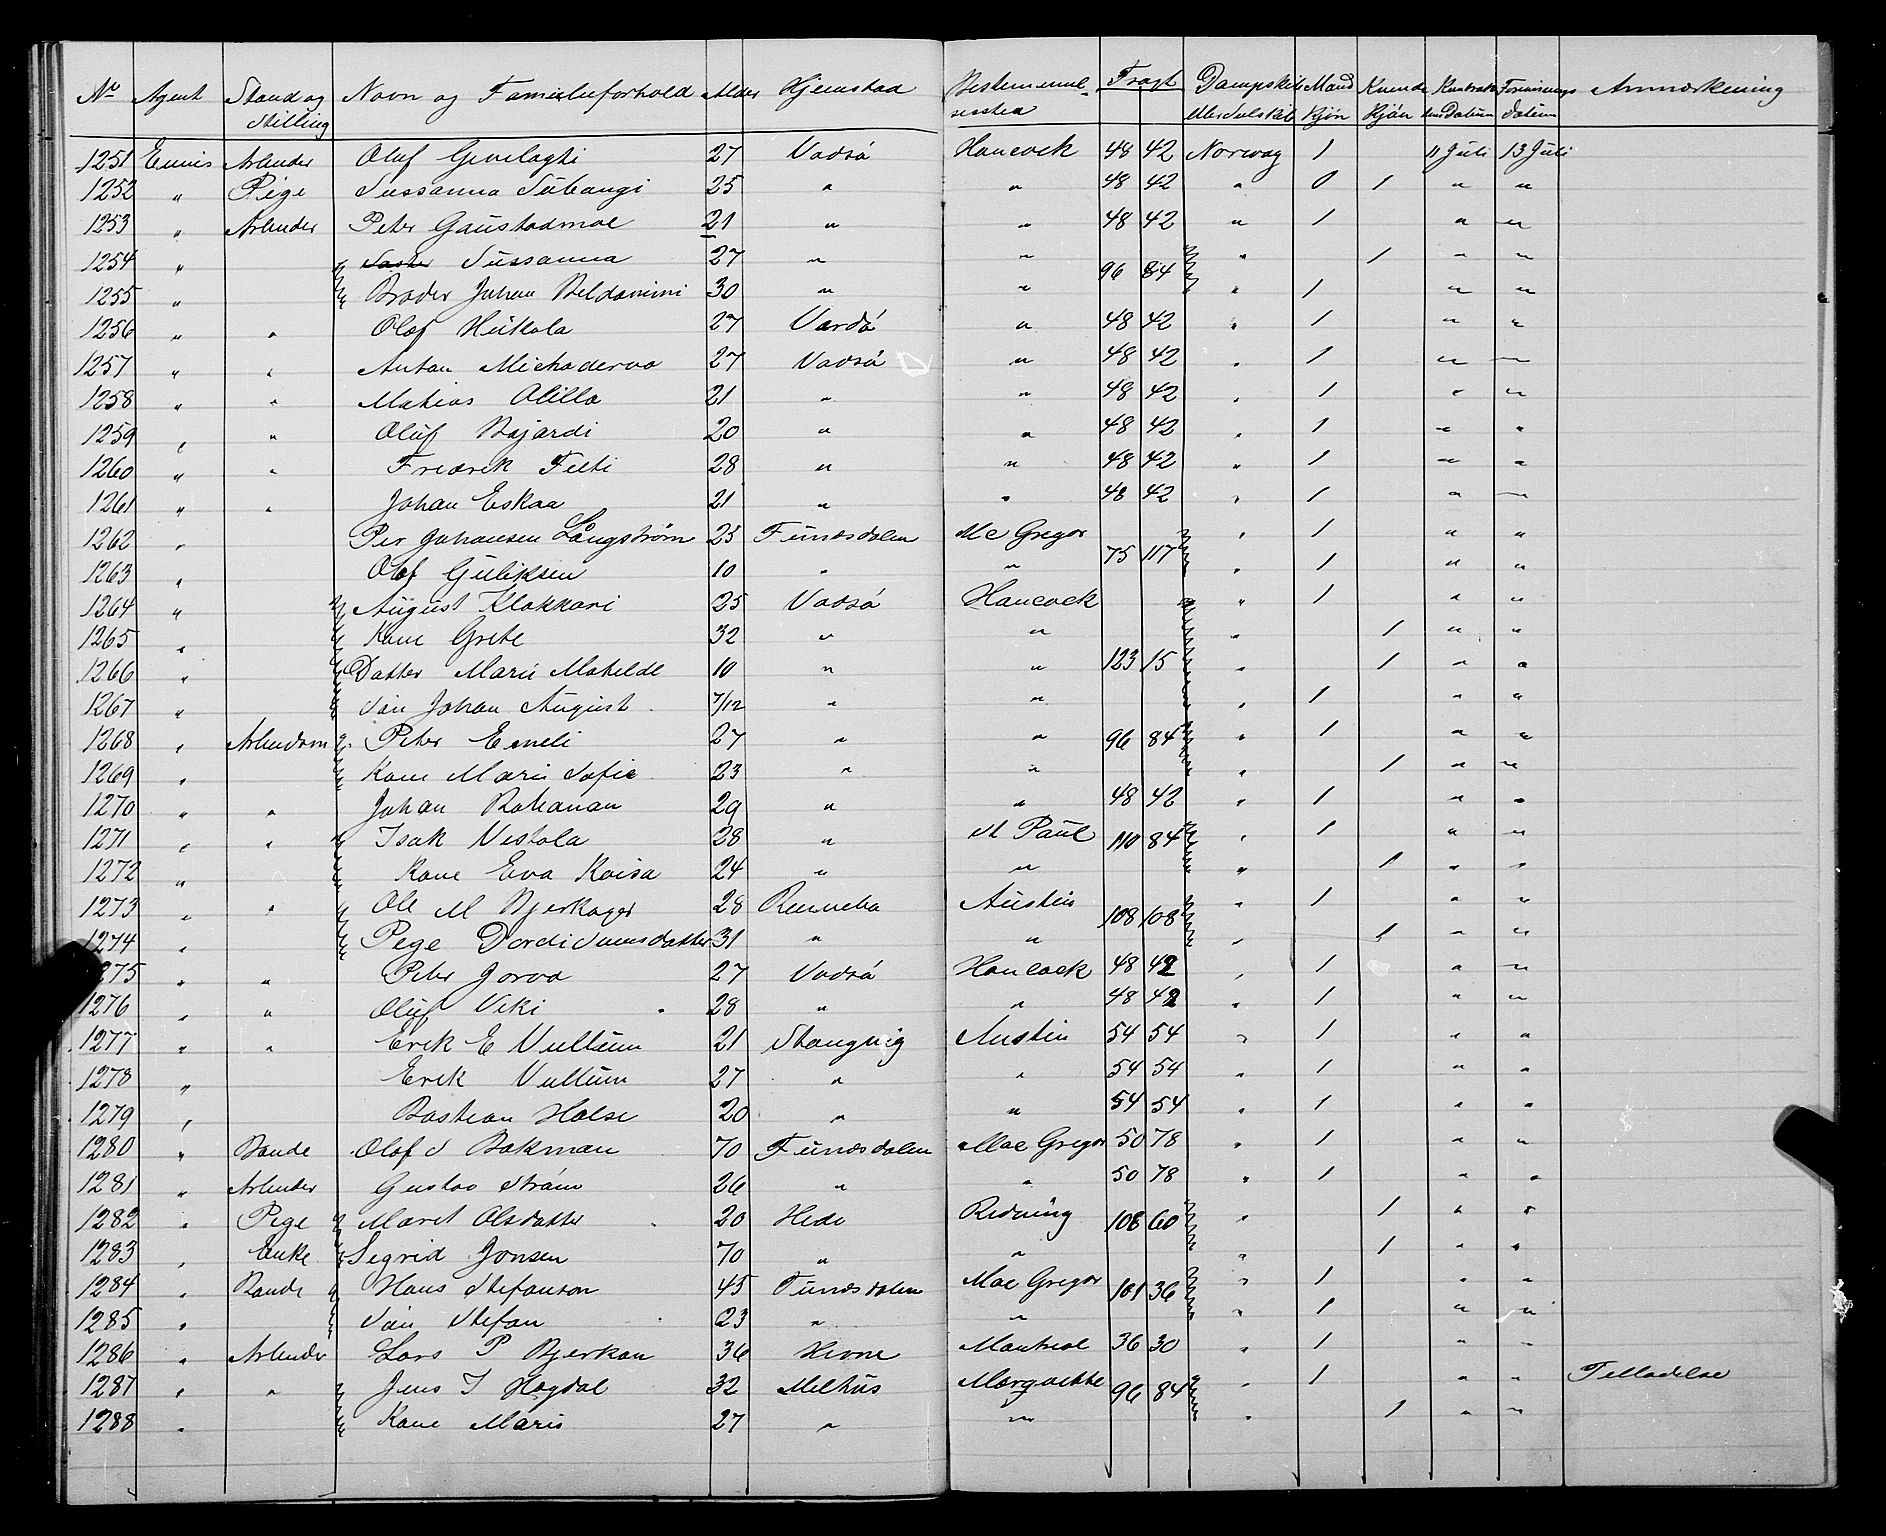 No Agent Stand og Stilling Navn og Familieforhold Alder Hjemstad Bestemmelsessted Fragt Dampskib eller Selskab Mand Kjön Kvinde Kjön Datum Datum Anmærkning
1251 Ennis Arbeider Oluf 27 Vadsö Hancock 48 42 Norway 1 11 Juli 13 Juli
1252 " Pige Sussanna 25 " " 48 42 " 0 1 " "
1253 " Arbeider Peter Gaustadmoe 21 " " 48 42 " 1 " "
1254 " Søster Sussanna 27 " " 96 84 " 1 " "
1255 " Broder Johan Beldamini 30 " " " 1 " "
1256 " " Olaf Hukola 27 Vardö " 48 42 " 1 " "
1257 " " Anton 27 Vadsö " 48 42 " 1 " "
1258 " " Matias Alilla 21 " " 48 42 " 1 " "
1259 " " Oluf Bajardi 20 " " 48 42 " 1 " "
1260 " " Fredrek 28 " " 48 42 " 1 " "
1261 " " Johan Eskaa 21 " " 48 42 " 1 " "
1262 " Per Johansen Långstrøm 25 Funæsdalen Mc Gregor 75 117 " 1 " "
1263 " Olof Guliksen 10 " " " 1 " "
1264 " August Klakkari 25 Vadsö Hancock " 1 " "
1265 " Kone Grete 32 " " " 1 " "
1266 " Datter Marie Matilde 10 " " 123 15 " 1 " "
1267 " Sön Johan August 7/12 " " " 1 " "
1268 " Arbeidsm Peter Emeli 27 " " 96 84 " 1 " "
1269 " Kone Marie Sofie 23 " " " 1 " "
1270 " " Johan Rahanan 29 " " 48 42 " 1 " "
1271 " " Isak Vestola 28 " St Paul 110 84 " 1 " "
1272 " Kone Eva Kaisa 24 " " " 1 " "
1273 " " Ole M Bjerkager 28 Rennebo Austin 108 108 " 1 " "
1274 " Pege Dordi 31 " " " 1 " "
1275 " " Peter Jorva 27 Vadsö Hancock 48 42 " 1 " "
1276 " " Oluf Viki 28 " " 48 42 " 1 " "
1277 " " Erik E Vullum 21 Stangvig Austin 54 54 " 1 " "
1278 " Erik Vullum 27 " " 54 54 " 1 " "
1279 " Bastian Halse 20 " " 54 54 " 1 " "
1280 " Bonde Olof S Bakman 70 Funæsdalen Mac Gregor 50 78 " 1 " "
1281 " Arbeider Gustav Ström 26 " " 50 78 " 1 " "
1282 " Pege Maret Olsdatter 20 Hede Redwing 108 60 " 1 " "
1283 " Enke Segrid Jonsen 70 " " " 1 " "
1284 " Bonde Hans Stefanson 45 Funæsdalen Mac Gregor 101 36 " 1 " "
1285 " Sön Stefan 23 " " " 1 " "
1286 " Arbeider Lars P Bjerkan 36 Hevne Montreal 36 30 " 1 " "
1287 " " Jens J Hogdal 32 Melhus Marqvette 96 84 " 1 " " Tilladelse
1288 " Kone Maris 27 " " " 1 " "